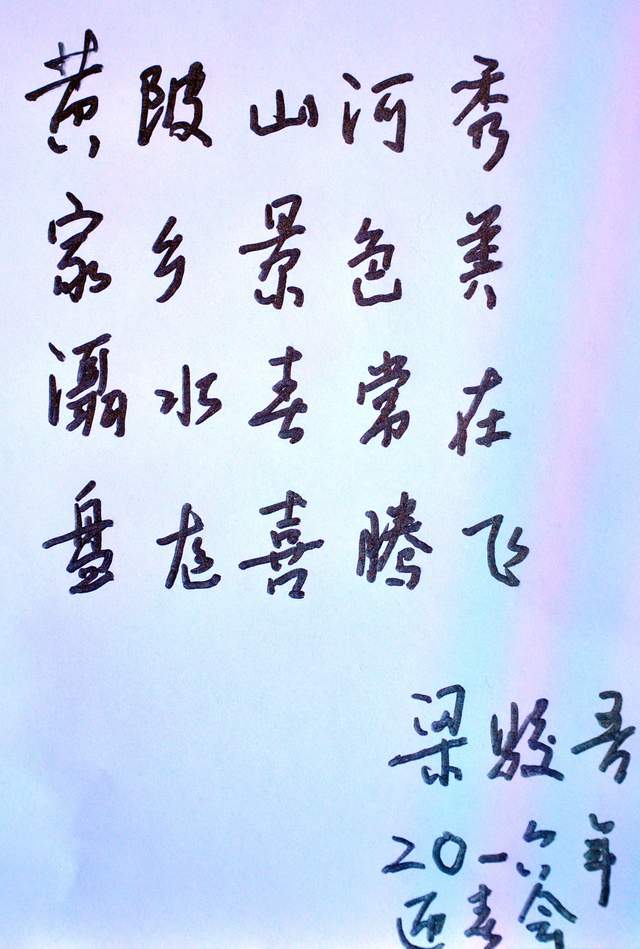 黄陂山河秀
家乡景色美
滠水春常在
盘龙喜腾飞
梁骏吾
20一六年
迎春会